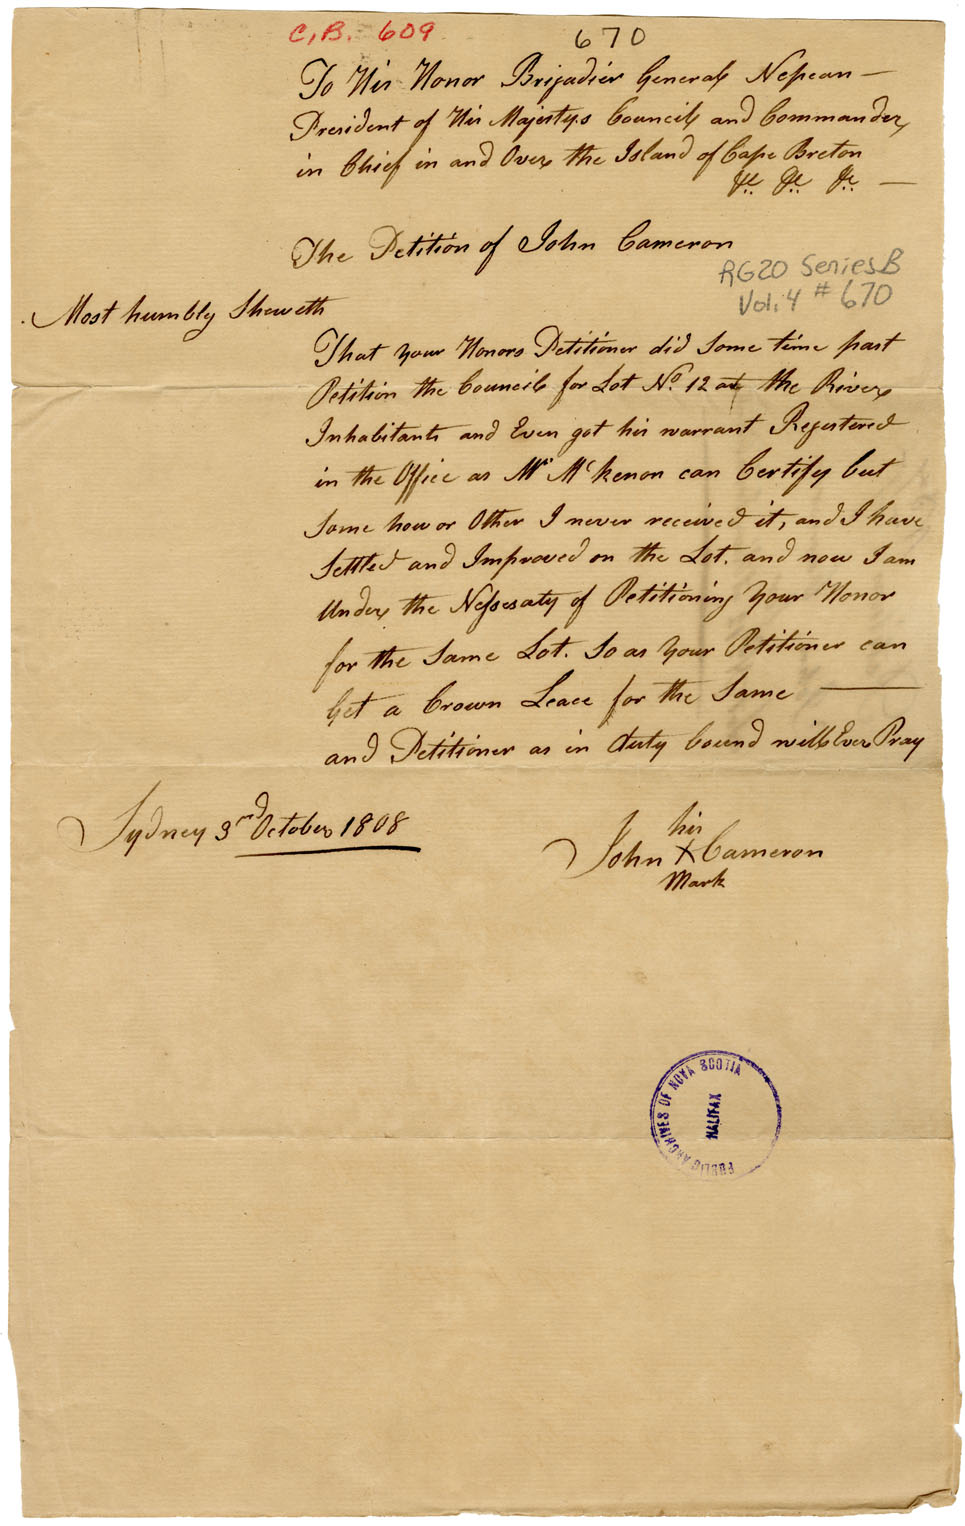 C.B. 609
670
To His Honor Brigadier General Nepean —
President of His Majestys Council and Commander
in Chief in and Over the Island of Cape Breton
&c &c &c —
The Petition of John Cameron
RG20 Series B
Vol. 4 # 670
Most humbly Sheweth
That your Honors Petitioner did Some time past
Petition the Council for Lot No. 12 at the River
Inhabitants and Even got his warrant Regestered
in the Office as Mr. McKenon can Certify but
Some how or Other I never received it, and I have
Settled and Improved on the Lot. and now I am
Under the Nessesaty of Petitioning your Honor
for the Same Lot. So as your Petitioner can
Get a Crown Leace for the Same —
and Petitioner as in duty bound will Ever Pray
Sydney 3rd October 1808
his
John X Cameron
Mark
PUBLIC ARCHIVES OF NOVA SCOTIA
HALIFAX